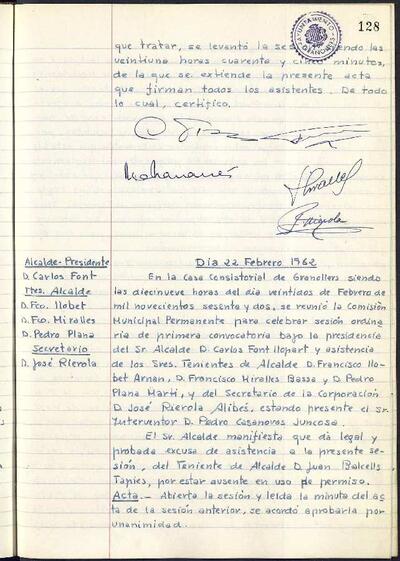 128
AYUNTAMIENTO
GRANOLLERS
que tratar, se levantó la siendo las
veintiuna horas cuarenta y cinco minutos,
de la que se extiende la presente acta
que firman todos los asistentes. De todo
lo cual, certifico.
Alcalde-Presidente
D. Carlos Font
Ttes. Alcalde
D. Fco. Llobet
D. Fco. Miralles
D. Pedro Plana
Secretario
D. José Rierola
Día 22 Febrero 1962
En la Casa Consistorial de Granollers siendo
las diecinueve horas del día veintidos de Febrero de
mil novecientos sesenta y dos, se reunió la Comisión
Municipal Permanente para celebrar sesión ordina
ria de primera convocatoria bajo la presidencia
del Sr. Alcalde D. Carlos Font Llopart y asistencia
de los Sres. Tenientes de Alcalde D. Francisco Llo
bet Arnan, D. Francisco Miralles Bassa y D. Pedro
Plana Martí, y del Secretario de la Corporación
D. José Rierola Alibés, estando presente el Sr.
Interventor D. Pedro Casanovas Juncosa.
El Sr. Alcalde manifiesta que dá legal y
probada excusa de asistencia a la presente se
sión, del Teniente de Alcalde D. Juan Balcells
Tapies, por estar ausente en uso de permiso.
Acta.- Abierta la sesión y leída la minuta del ac
ta de la sesión anterior, se acordó aprobarla por
unanimidad.